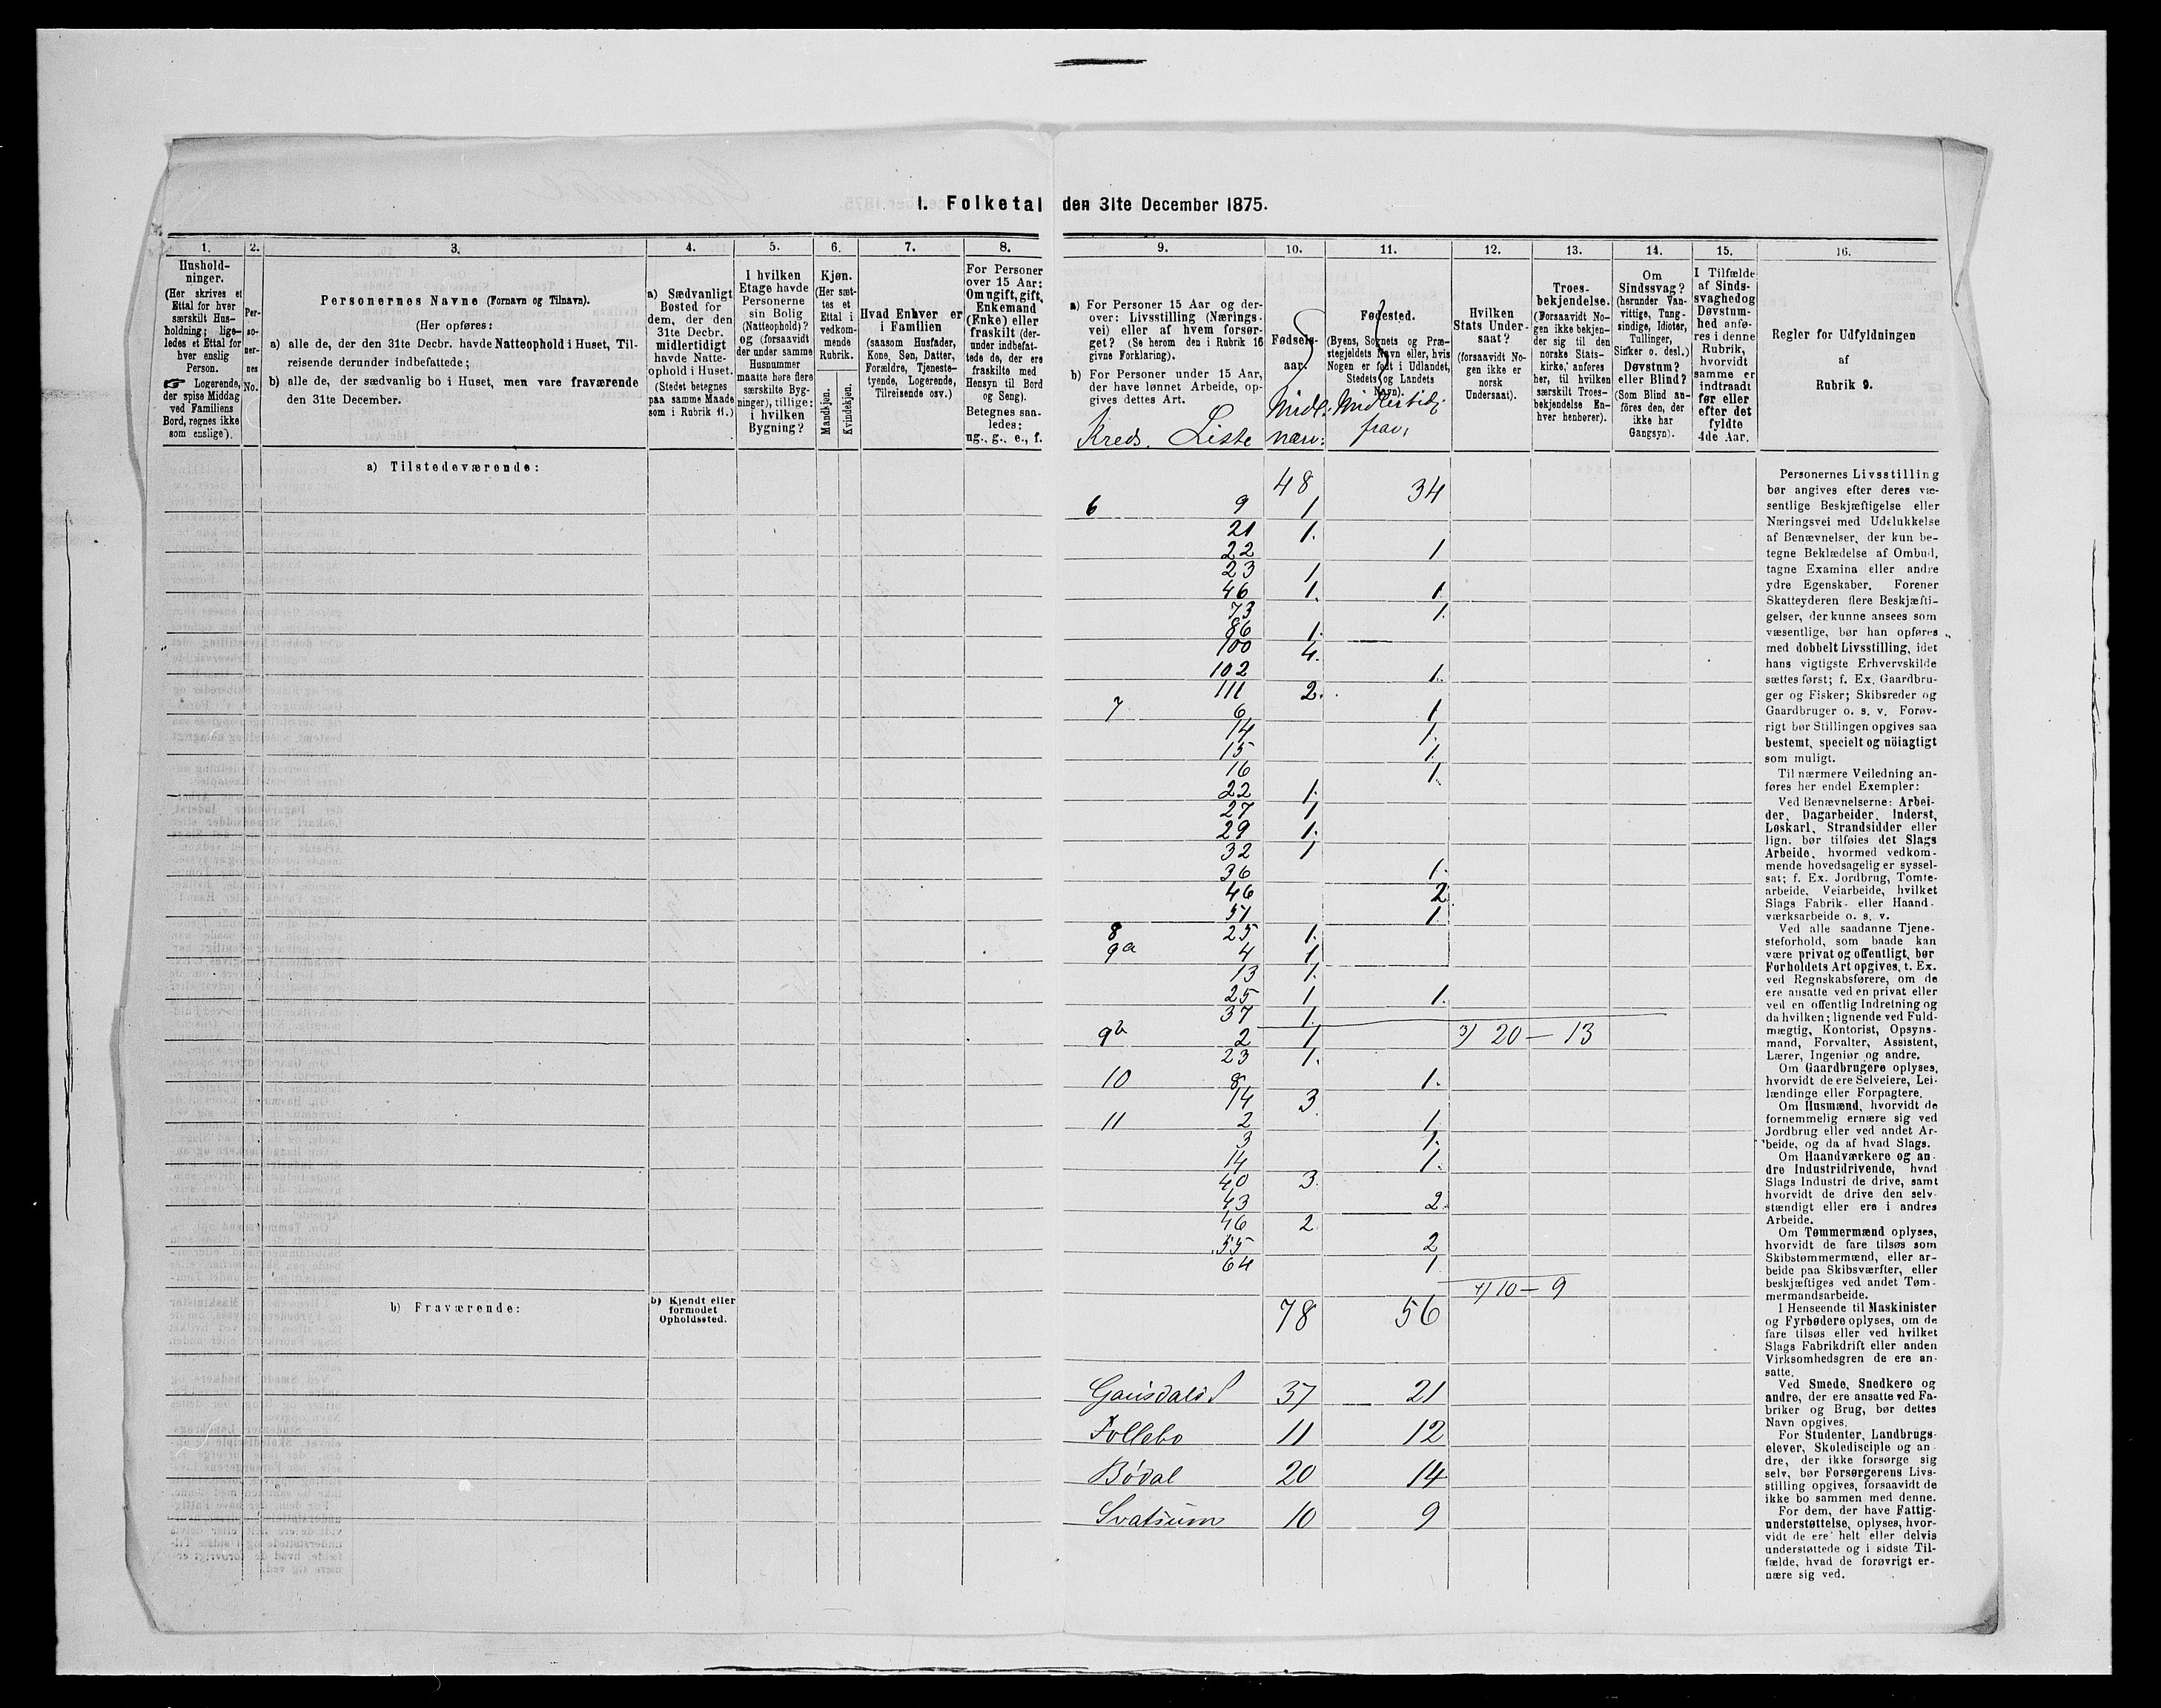 I. Folketal den 31te December 1875.
1.
Hushold-
ninger.
(Her skrives et
Ettal for hver
særskilt Hus-
holdning; lige-
ledes et Ettal for
hver enslig
Person.
☞ Logerende,
der spise Middag
ved Familiens
Bord, regnes ikke
som enslige).
2.
Per-
so-
ner-
nes
No.
3.
Personernes Navne (Fornavn og Tilnavn).
(Her opføres:
a) alle de, der den 31te Decbr. havde Natteophold i Huset, Til-
reisende derunder indbefattede;
b) alle de, der sædvanlig bo i Huset, men vare fraværende
den 31te December.
4.
a) Sædvanligt
Bosted for
dem, der den
31te Decbr.
midlertidigt
havde Natte-
ophold i Huset.
(Stedet betegnes
paa samme Maade
som i Rubrik 11.)
5.
I hvilken
Etage havde
Personerne
sin Bolig
(Natteophold)?
og (forsaavidt
der under samme
Husnummer
maatte høre flere
særskilte Byg-
ninger), tillige:
i hvilken
Bygning?
6.
Kjøn.
(Her sæt-
tes et
Ettal i
vedkom-
mende
Rubrik.
Mandkjøn.
Kvindekjøn.
7.
Hvad Enhver er
i Familien
(saasom Husfader,
Kone, Søn, Datter,
Forældre, Tjeneste-
tyende, Logerende,
Tilreisende osv.)
8.
For Personer
over 15 Aar:
Om ugift, gift,
Enkemand
(Enke) eller
fraskilt (der-
under indbefat-
tede de, der ere
fraskilte med
Hensyn til Bord
og Seng).
Betegnes saa-
ledes:
ug., g., e., f.
9.
a) For Personer 15 Aar og der-
over: Livsstilling (Nærings-
vei) eller af hvem forsør-
get? (Se herom den i Rubrik 16
givne Forklaring).
b) For Personer under 15 Aar,
der have lønnet Arbeide, op-
gives dettes Art.
Kreds. Liste
10.
Fødsels-
aar.
Midl.
nærv:
11.
Fødested.
(Byens, Sognets og Præ-
stegjeldets Navn eller, hvis
Nogen er født i Udlandet,
Stedets og Landets
Navn).
Midlertid;
frav,
12.
Hvilken
Stats Under-
saat?
(forsaavidt No-
gen ikke er
norsk
Undersaat).
13.
Troes-
bekjendelse.
(Forsaavidt No-
gen ikke bekjen-
der sig til den
norske Stats-
kirke, anføres
her, til hvilken
særskilt Troes-
bekjendelse En-
hver henhører).
14.
Om
Sindssvag?
(herunder Van-
vittige, Tung-
sindige, Idioter,
Tullinger,
Sinker o. desl.)
Døvstum?
eller Blind?
(Som Blind an-
føres den, der
ikke har
Gangsyn).
15.
I Tilfælde
af Sinds-
svaghed og
Døvstum-
hed anfø-
res i denne
Rubrik,
hvorvidt
samme er
indtraadt
før eller
efter det
fyldte
4de Aar.
16.
Regler for Udfyldningen
af
Rubrik 9.
a) Tilstedeværende:
48 34
6 9 1
21 1.
22 1
23 1
46 1. 1
73 1.
86 1.
100 4.
102 1.
111 2.
7 6 1
14 1.
15 1
16 1.
22 1.
27 1
29 1.
32 1
36 1.
46 2
51 1
8 25 1.
9a 4 1
13 1.
25 1 1.
37 1.
9b 2 1 3) 20 — 13
23 1.
10 8 1.
14 3
11 2 1
3 1.
14 1.
40 3.
43 2.
46 2
55 2
64 1
4) 10 — 9
78 56
b) Fraværende:
b) Kjendt eller
formodet
Opholdssted.
Gausdals S 37 21
Follebo 11 12
Bødal 20 14
Svatsum 10 9
Personernes Livsstilling
bør angives efter deres væ-
sentlige Beskjæftigelse eller
Næringsvei med Udelukkelse
af Benævnelser, der kun be-
tegne Beklædelse af Ombud,
tagne Examina eller andre
ydre Egenskaber. Forener
Skatteyderen flere Beskjæfti-
gelser, der kunne ansees som
væsentlige, bør han opføres
med dobbelt Livsstilling, idet
hans vigtigste Erhvervskilde
sættes først; f. Ex. Gaardbru-
ger og Fisker; Skibsreder og
Gaardbruger o. s. v. Forøv-
rigt bør Stillingen opgives saa
bestemt, specielt og nöiagtigt
som muligt.
Til nærmere Veiledning an-
føres her endel Exempler:
Ved Benævnelserne: Arbei-
der, Dagarbeider, Inderst,
Løskarl, Strandsidder eller
lign. bør tilføies det Slags
Arbeide, hvormed vedkom-
mende hovedsagelig er syssel-
sat; f. Ex. Jordbrug, Tomte-
arbeide, Veiarbeide, hvilket
Slags Fabrik- eller Haand-
værksarbeide o. s. v.
Ved alle saadanne Tjene-
steforhold, som baade kan
være privat og offentligt, bør
Forholdets Art opgives, t. Ex.
ved Regnskabsførere, om de
ere ansatte ved en privat eller
ved en offentlig Indretning og
da hvilken; lignende ved Fuld-
mægtig, Kontorist, Opsyns-
mand, Forvalter, Assistent,
Lærer, Ingeniør og andre.
Om Gaardbrugere oplyses,
hvorvidt de ere Selveiere, Lei-
lændinge eller Forpagtere.
Om Husmænd, hvorvidt de
fornemmelig ernære sig ved
Jordbrug eller ved andet Ar-
beide, og da af hvad Slags.
Om Haandværkere og an-
dre Industridrivende, hvad
Slags Industri de drive, samt
hvorvidt de drive den selv-
stændigt eller ere i andres
Arbeide.
Om Tømmermænd oplyses,
hvorvidt de fare tilsøs som
Skibstømmermænd, eller ar-
beide paa Skibsværfter, eller
beskjæftiges ved andet Tøm-
mermandsarbeide.
I Henseende til Maskinister
og Fyrbødere oplyses, om de
fare tilsøs eller ved hvilket
Slags Fabrikdrift eller anden
Virksomhedsgren de ere an-
satte.
Ved Smede, Snedkere og
andre, der ere ansatte ved Fa-
briker og Brug, bør dettes
Navn opgives.
For Studenter, Landbrugs-
elever, Skoledisciple og an-
dre, der ikke forsørge sig
selv, bør Forsørgerens Livs-
stilling opgives, forsaavidt de
ikke bo sammen med denne.
For dem, der have Fattig-
understøttelse, oplyses, hvor-
vidt de ere helt eller delvis
understøttede og i sidste Til-
fælde, hvad de forøvrigt er-
nære sig ved.